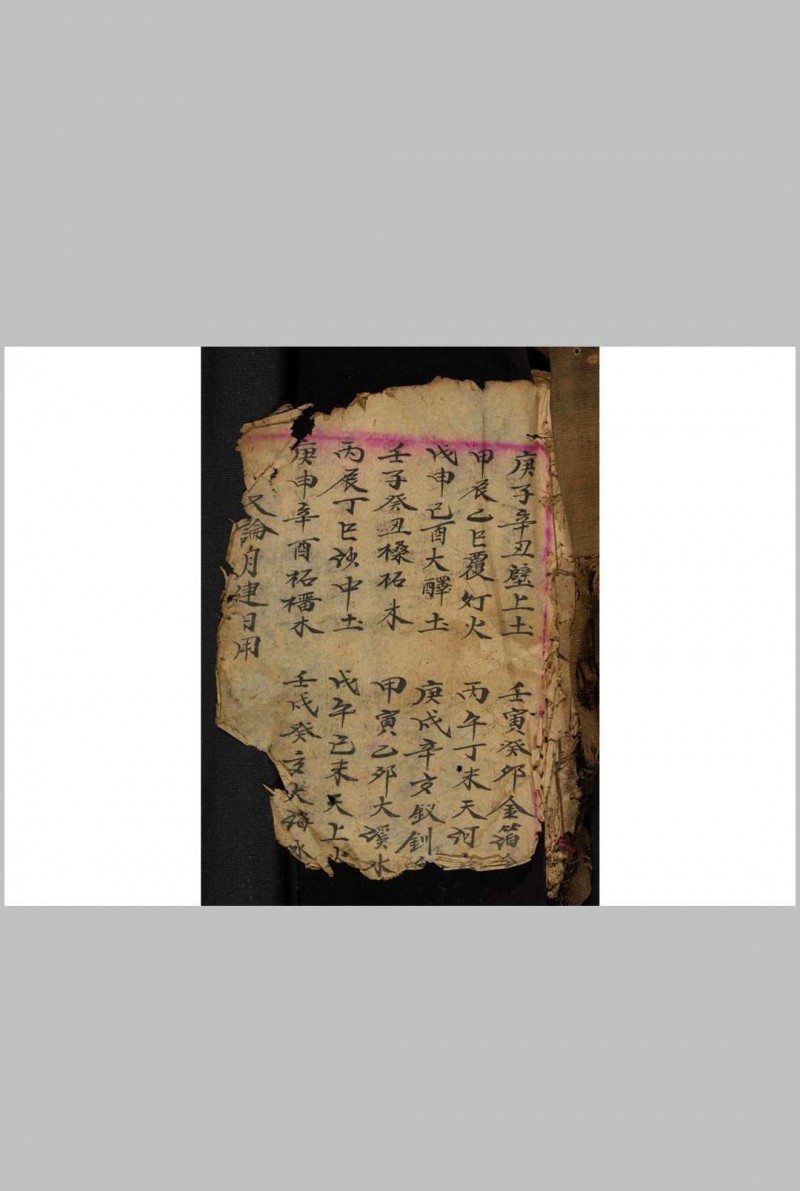 庚子辛丑壁上土 壬寅癸卯金箔金
甲辰乙巳覆灯火 丙午丁未天河
戊申己酉大醳土 庚戌辛亥釵釧
壬子癸丑桑柘木 甲寅乙卯大溪水
丙辰丁巳沙中土 戊午己未天上火
庚申辛酉柘榴木 壬戌癸亥大海水
又論月建日用